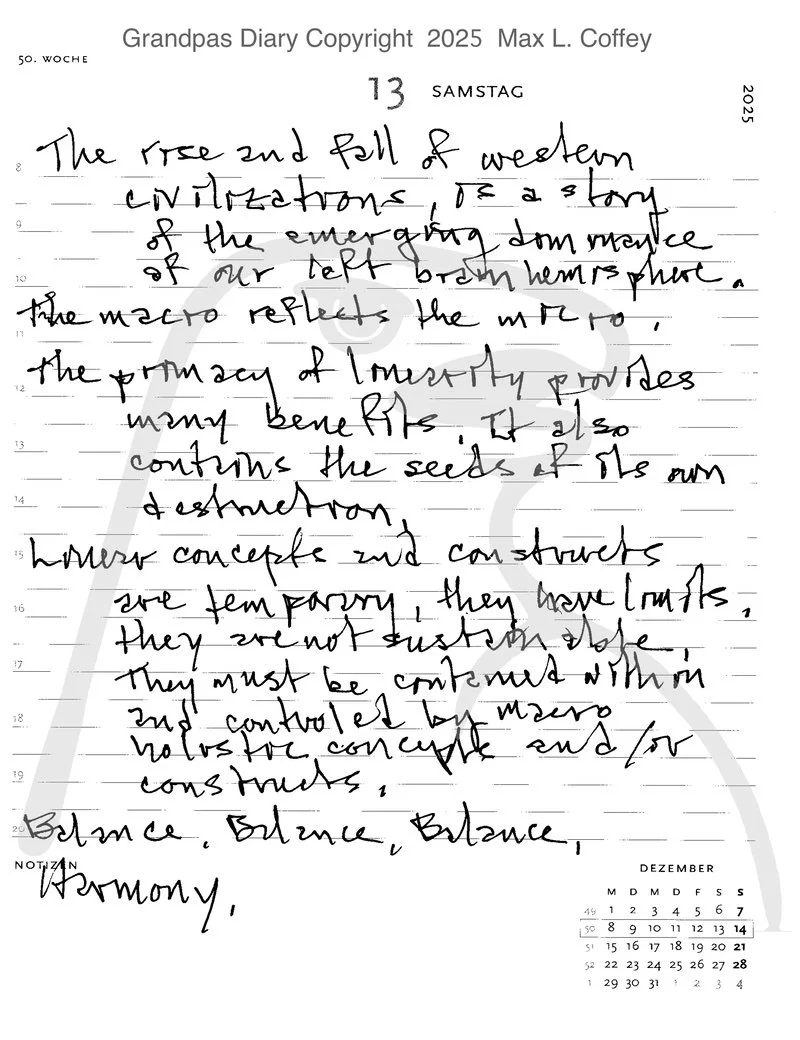 Grandpas Diary Copyright 2025 Max L. Coffey
50. WOCHE
13 SAMSTAG
2025
8 The rise and fall of western
civilizations, is a story
9 of the emerging dominance
10 of our left brain hemisphere.
the macro reflects the micro.
11
12 the primacy of linearity provides
many benefits. It also
13 contains the seeds of its own
14 destruction.
15 Linear concepts and constructs
16 are temporary, they have limits,
they are not sustainable.
17 They must be contained within
18 and controled by macro
holistic concepts and/or
19 constructs.
20 Balance, Balance, Balance,
NOTIZEN
Harmony.
DEZEMBER
M D M D F S S
49 1 2 3 4 5 6 7
50 8 9 10 11 12 13 14
51 15 16 17 18 19 20 21
52 22 23 24 25 26 27 28
1 29 30 31 1 2 3 4